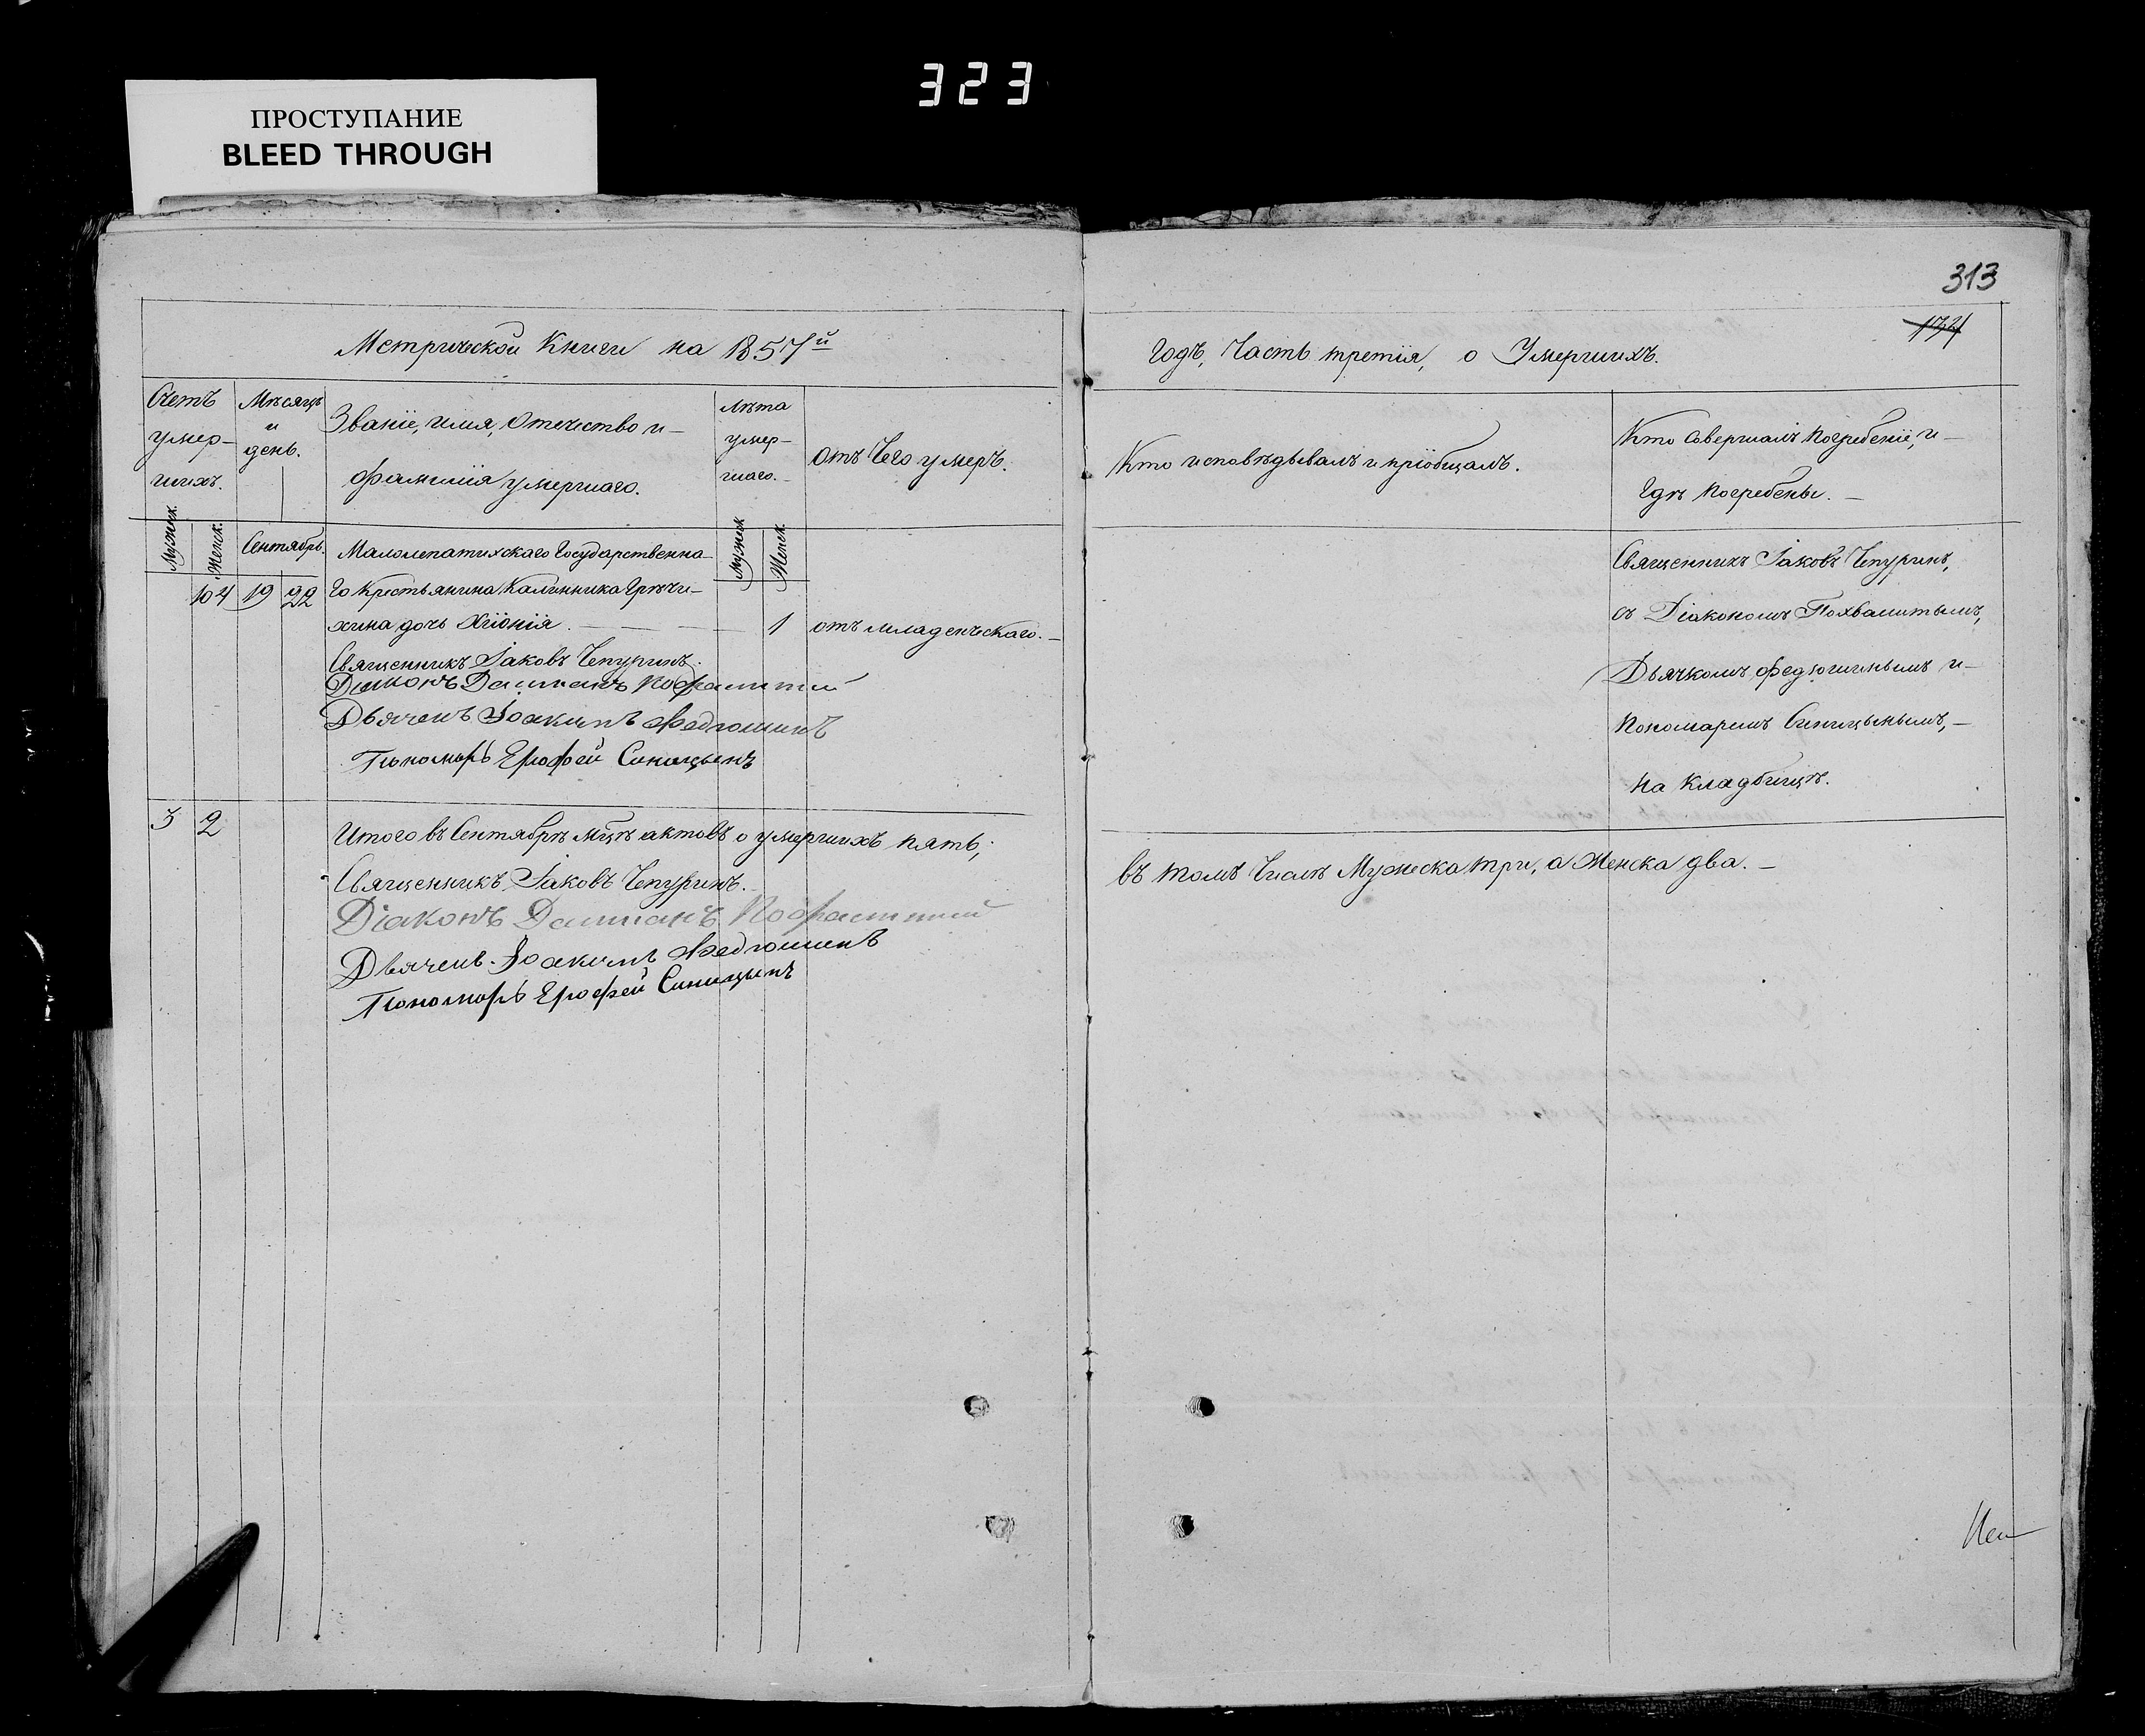 323
ПРОСТУПАНИЕ
BLEED THROUGH
313
Метрической Книги на 1857й
Годъ, Часть третія, о Умершихъ.
Счетъ умер-шихъ.
Мѣсяцъ и день.
Званіе, имя, Отечество и фамилія умершаго.
Лѣта умер-шаго.
отъ Чего умеръ.
Кто исповѣдывалъ и пріобщалъ.
Кто Совершалъ погребеніе, и
Гдѣ погребены.
Мужск.
Женск.
Сентябрь.
Мужск
Женск.
Малолепатихскаго Государственна-
104 19 22 го Крестьянина Калинника Грѣчи-
хина дочь Хіонія. 1 отъ младенческаго.
Священникъ Іаковъ Чепуринъ.
Діаконъ Даміанъ Похвалитый
Дьячекъ Іоакимъ Федюшинъ
Пономарь Ерофей Синицынъ
Священникъ Іаковъ Чепуринъ,
съ Діакономъ Похвалитымъ,
Дьячкомъ Федюшинымъ и
Пономаремъ Синицынымъ,
на кладбищѣ.
3 2 Итого въ Сентябрѣ мцѣ актовъ о умершихъ пять,
въ томъ Числѣ Мужеска три, а Женска два.
Священникъ Іаковъ Чепуринъ.
Діаконъ Даміанъ Похвалитый
Дьячекъ Іоакимъ Федюшинъ
Пономарь Ерофей Синицынъ